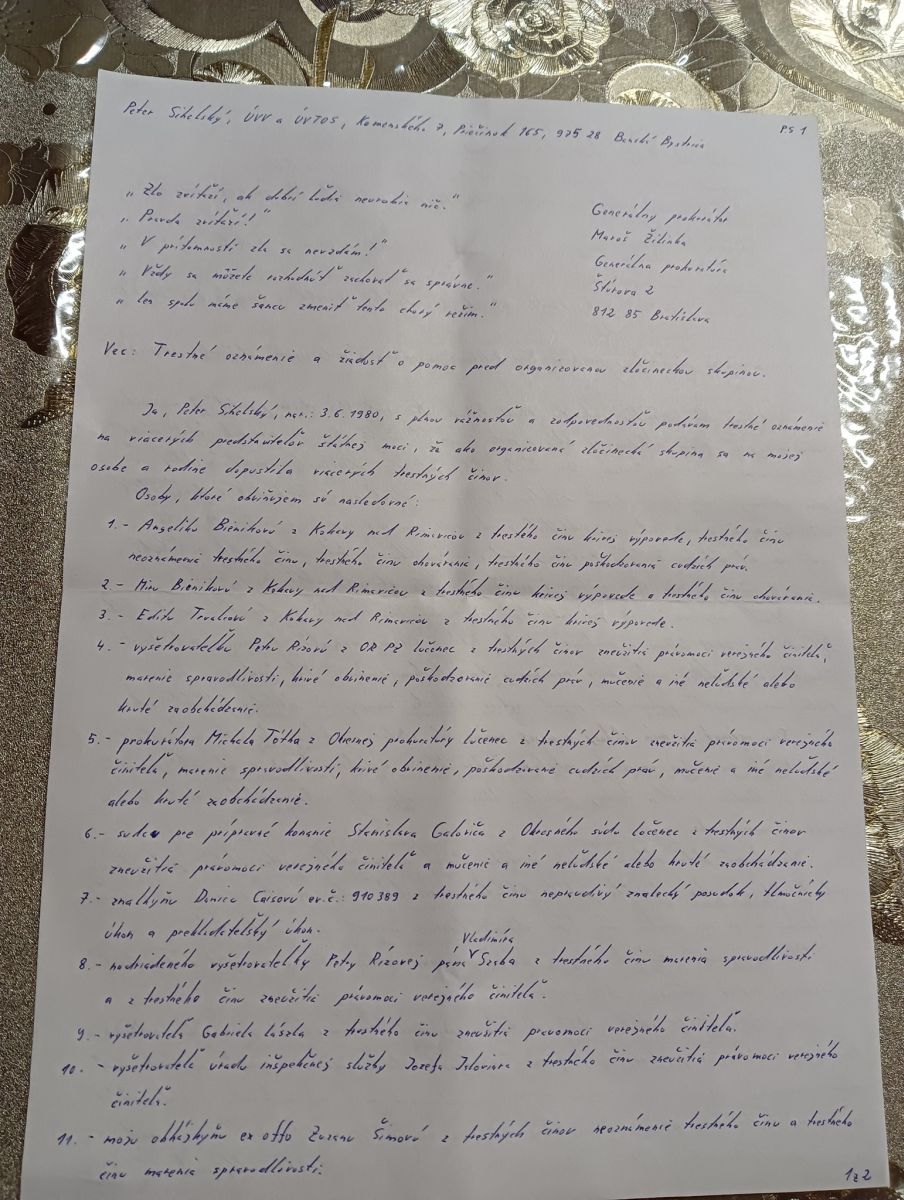 Peter Sihelský, ÚVV a ÚVTOS, Komenského 7, Priečinok 165, 975 28 Banská Bystrica
PS 1
„Zlo zvíťazí, ak dobrí ľudia neurobia nič."
„Pravda zvíťazí!"
„V prítomnosti zla sa nevzdám!"
„Vždy sa môžete rozhodnúť zachovať sa správne."
„Len spolu máme šancu zmeniť tento chorý režim."
Generálny prokurátor
Maroš Žilinka
Generálna prokuratúra
Štúrova 2
812 85 Bratislava
Vec: Trestné oznámenie a žiadosť o pomoc pred organizovanou zločineckou skupinou.
Ja, Peter Sihelský, nar.: 3.6.1980, s plnou vážnosťou a zodpovednosťou podávam trestné oznámenie
na viacerých predstaviteľov štátnej moci, že ako organizovaná zločinecká skupina sa na mojej
osobe a rodine dopustila viacerých trestných činov.
Osoby, ktoré obviňujem sú nasledovné:
1.- Angeliku Bieniková z Kokavy nad Rimavicou z trestého činu krivej výpovede, trestného činu
neoznámenia trestného činu, trestného činu ohovárania, trestného činu poškodzovania cudzích práv.
2.- Miru Bieniková z Kokavy nad Rimavicou z trestného činu krivej výpovede a trestného činu ohovárania.
3.- Editu Trvalcovú z Kokavy nad Rimavicou z trestného činu krivej výpovede.
4.- vyšetrovateľku Petru Rízovú z OR PZ Lučenec z trestných činov zneužitia právomoci verejného činiteľa,
marenie spravodlivosti, krivé obvinenie, poškodzovanie cudzích práv, mučenie a iné neľudské alebo
kruté zaobchádzanie.
5.- prokurátora Michala Tótha z Okresnej prokuratúry Lučenec z trestných činov zneužitia právomoci verejného
činiteľa, marenie spravodlivosti, krivé obvinenie, poškodzovanie cudzích práv, mučenie a iné neľudské
alebo kruté zaobchádzanie.
6.- sudcu pre prípravné konanie Stanislava Galoviča z Okresného súdu Lučenec z trestných činov
zneužitia právomoci verejného činiteľa a mučenie a iné neľudské alebo kruté zaobchádzanie.
7.- znalkyňu Danicu Caisovú ev.č.: 910389 z trestného činu nepravdivý znalecký posudok, tlmočnícky
úkon a prekladateľský úkon.
8.- nadriadeného vyšetrovateľky Petry Rízovej pána Vladimíra Szaba z trestného činu marenia spravodlivosti
a z trestného činu zneužitia právomoci verejného činiteľa.
9.- vyšetrovateľa Gabriela Lászla z trestného činu zneužitia pravomoci verejného činiteľa.
10.- vyšetrovateľa úradu inšpekčnej služby Jozefa z trestného činu zneužitia právomoci verejného
činiteľa.
11.- moju obhájkyňu ex offo Zuzanu Šimovú z trestných činov neoznámenie trestného činu a trestného
činu marenia spravodlivosti.
1 z 2